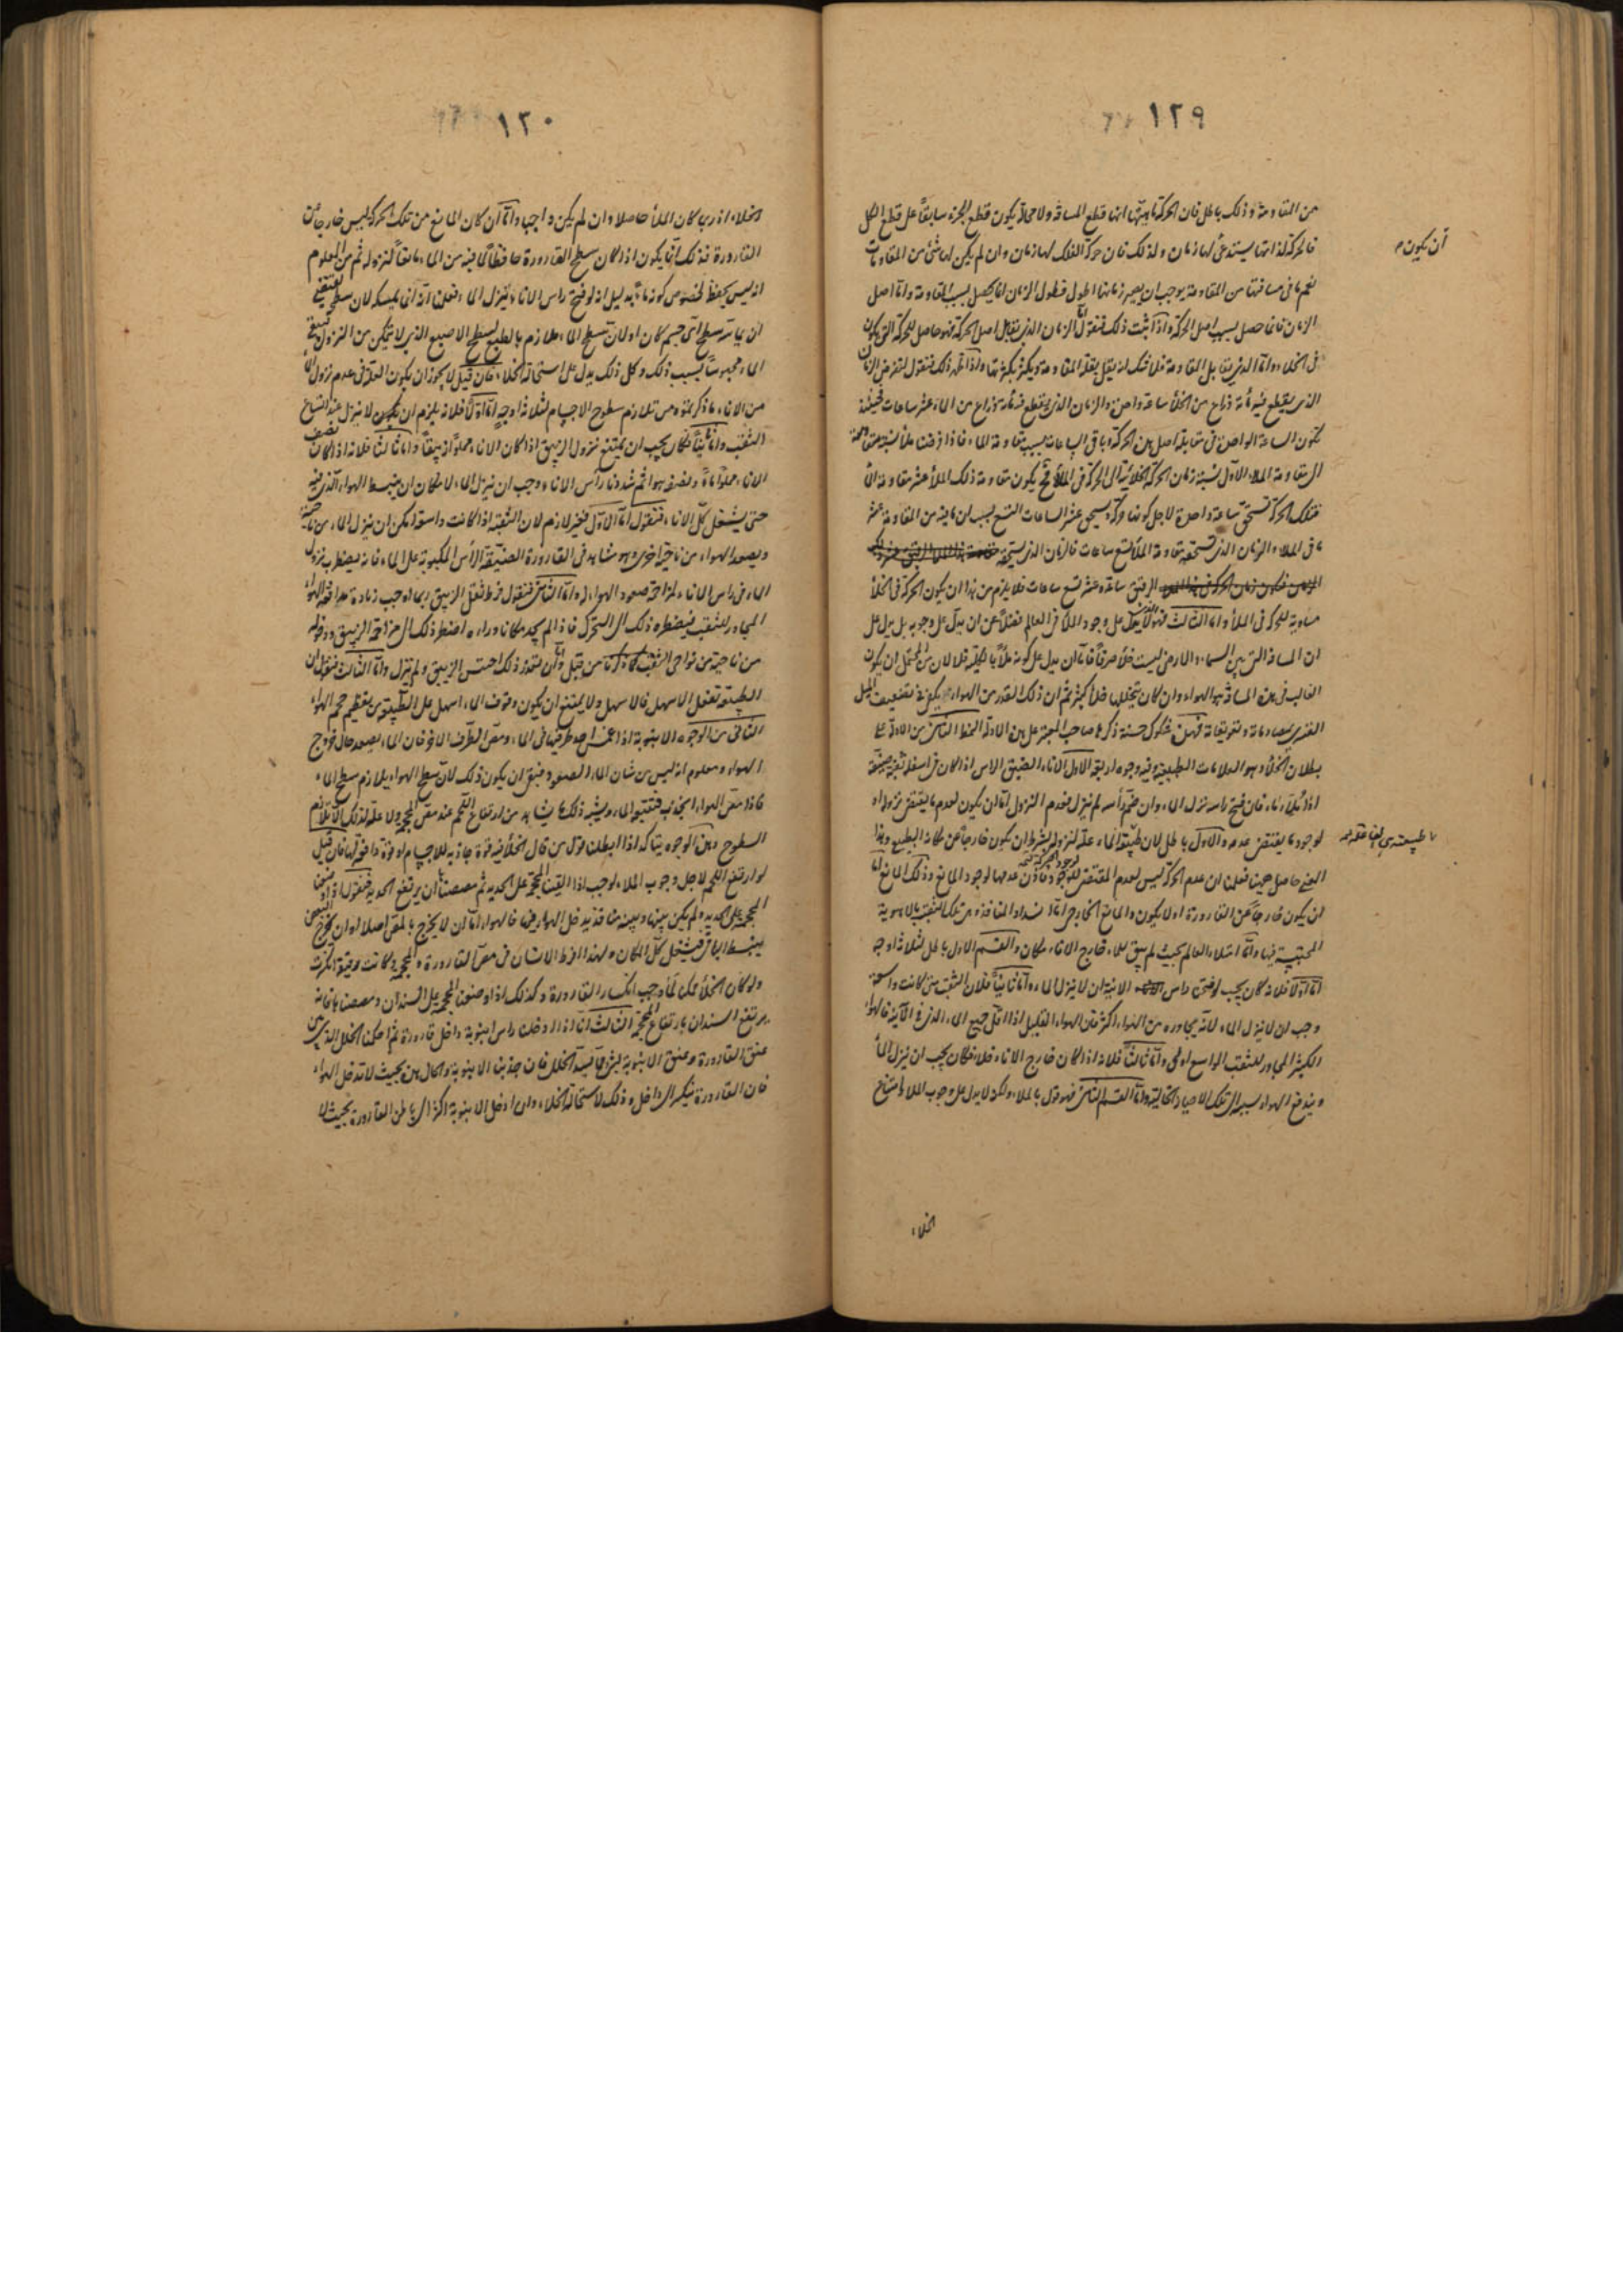 ١٢٩
من المقاومة وذلك باطل فان الحركة ماهيتها انها قطع المسافة ولا محالة يكون قطع الجزء سابقاً على قطع الكل
آن يكون
فالحركة لذاتها يستدعى لها زمان ولذلك فان حركة الفلك لها زمان وان لم يكن لها شئ من المقاومات
نعم ما فى مسافتها من المقاومة يوجب ان يصير زمانها اطول فطول الزمان انما يحصل بسبب المقاومة واما اصل
الزمان فانما حصل بسبب اصل الحركة واذا ثبت ذلك فنقول الزمان الذى يقابل اصل الحركة فهو حاصل للحركة التى يكون
فى الخلاء واما الذى يقابل المقاومة فلا شك انه يقل بقلة المقاومة ويكثر بكثرتها واذا ظهر ذلك فنقول لنفرض الزمان
الذى يقطع فيه مأة ذراع من الخلأ ساعة واحدة والزمان الذى يقطع فيه مأة ذراع من الماء عشر ساعات فحينئذ
تكون الساعة الواحدة فى مقابلة اصل هذه الحركة وباقى الساعات بسبب مقاومة الماء فاذا فرضنا ملأ نسبة مقاومته
الى مقاومة الملاء الاول نسبة زمان الحركة الخلائية الى الحركة فى الملأ فح يكون مقاومة ذلك الملأ عشر مقاومة الملأ
فتلك الحركة تستحق ساعة واحدة لاجل كونها حركة ويستحق عشر الساعات التسع بسبب ان ما فيه من المقاومة عشر
ما فى الملاء والزمان الذى تستحقه مقاومة الملأ تسع ساعات فالزمان الذى يستحقه
الرقيق ساعة وعشر تسع ساعات فلا يلزم من هذا ان يكون الحركة فى الخلأ
مساوية للحركة فى الملأ واما الثالث فهو لا يدل على وجود الملأ فى العالم فضلاً عن ان يدل على وجوبه بل يدل على
ان المسافة التى بين السماء والارض ليست خلأ صرفاً فاما ان يدل على كونه ملأ بالكلية فلا لان من المحتمل ان يكون
الغالب فى هذه المسافة هو الهواء وان كان يتخللها خلأ كثير ثم ان ذلك القدر من الهواء يكفى فى تضعيف الميل
القسرى بمصادماته وتفريقاته فهذه شكوك حسنة ذكرها صاحب المعتبر على هذه الادلة النمط الثانى من الادلة على
بطلان الخلأ وهو العلامات الطبيعية وفيه وجوه اربعة الاول الاناء الضيق الراس اذا كان فى اسفله ثقبة ضيقة
اذا مُلِئَ ماء فان فتح راسه نزل الماء وان ضُمَّ رأسه لم ينزل فعدم النزول اما ان يكون لعدم ما يقتضى نزوله او
لوجود ما يقتضى عدمه والاول باطل لان طبيعة الماء علة لنزوله بشرط ان يكون خارجاً عن مكانه الطبيعى وهذا
المعنى حاصل ههنا فعلمنا ان عدم الحركة ليس لعدم المقتضى فاذن عدمها لوجود المانع وذلك المانع اما
ان يكون خارجاً عن القارورة او لا يكون والمانع الخارجى اما انسداد المنافذ من تلك الثقبة بالاهوية
المحتبسة فيها واما امتلاء العالم بحيث لم يبق للماء خارج الاناء مكان والقسم الاول باطل لثلاثة اوجه
اما اولا فلانه كان يجب لو فتح راس الانية ان لا ينزل الماء واما ثانياً فلان الثقب متى كانت واسعة
وجب ان لا ينزل الماء لانه يجاوره من الهواء اكثر فان الهواء القليل اذا اقل جميع الماء الذى فى الآنية فالهواء
الكثير المجاور للثقب الواسع اولى واما ثالثاً فلانه اذا كان خارج الاناء خلا فكان يجب ان ينزل الماء
ويندفع الهواء بسببه الى تلك الاحياز الخالية واما القسم الثانى فهو قول بالملاء ولكن لا يدل على وجوب الملاء وامتناع
الخلاء
١٣٠
الخلاء اذ ربما كان الملأ حاصلا وان لم يكن واجبا واما ان كان المانع من تلك الحركة ليس خارجاً عن
القارورة فذلك انما يكون اذا كان سطح القارورة حافظاً لما فيه من الماء مانعاً لنزوله ثم من المعلوم
انه ليس يحفظ لخصوص كونه ماءً بدليل انه لو فتح راس الاناء لنزل الماء فعلمنا انه انما يمسكه لان سطحه يقتضى
ان يماس سطح اى جسم كان اولان سطح الماء ملازم بالطبع لسطح الاصبع الذى لا يتمكن من النزول فيبقى
الماء محبوساً بسبب ذلك وكل ذلك يدل على استحالة الخلاء فان قيل لا يجوز ان يكون العلة فى عدم نزول الماء
من الاناء ما ذكرتموه من تلازم سطوح الاجسام لثلاثة اوجه اما اولاً فلانه يلزم ان لا ينزل عند اتساع
الثقب واما ثانياً فكان يجب ان يمتنع نزول الزيبق اذا كان الاناء مملوأ زيبقاً واما ثالثاً فلانه اذا كان نصف
الاناء مملواً ماءً ونصفه هواءً ثم شددنا رأس الاناء وجب ان ينزل الماء لامكان ان ينبسط الهواء الذى فيه
حتى يشغل كل الاناء فنقول اما الاول فغير لازم لان الثقبة اذا كانت واسعة امكن ان ينزل الماء من ناحية
ويصعد الهواء من ناحية اخرى وهو مشاهد فى القارورة الضيقة الرأس المكبوبة على الماء فانه يضطرب نزول
الماء فى راس الاناء لمزاحمة صعود الهواء له واما الثانى فنقول فرط ثقل الزيبق ربما اوجب زيادة مدافعة الهواء
المجاور للثقب فيضطره ذلك الى التحرك فاذا لم يجد مكانا وراءه اضطر ذلك الى مزاحمة الزيبق ودخوله
من ناحية من نواحى الثقب كما ذكرنا من قبل وان تعذر ذلك احتبس الزيبق ولم ينزل واما الثالث فنقول ان
الطبيعة تفعل الاسهل فالاسهل ولا يمتنع ان يكون وقوف الماء اسهل على الطبيعة من تعظيم حجم الهواء
الثانى من الوجوه الانبوبة اذا غمس احد طرفيها فى الماء ومص الطرف الاخر فان الماء يصعد حال خروج
الهواء ومعلوم انه ليس من شان الماء الصعود فبقى ان يكون ذلك لان سطح الهواء يلازم سطح الماء
فاذا مص الهواء انجذب فتتبعه الماء ويشبه ذلك ما يشاهد من ارتفاع اللحم عند مص المحجمة ولا علة لذلك الا تلازم
السطوح وهذه الوجوه يتأكد اذا ابطلنا قول من قال الخلأ فيه قوة جاذبة للاجسام او قوة دافعة لها فان قيل
لو ارتفع اللحم لاجل وجوب الملاء لوجب اذا القينا المحجمة على الحديد ثم مصصناها ان يرتفع الحديد فنقول اذا وضعنا
المحجمة على الحديد ولم يكن بينها وبينه منافذ يدخل الهواء فيها فالهواء اما ان لا يخرج بالمص اصلا او ان يخرج البعض
ينبسط الباقى فيشغل كل المكان ولهذا افرط الانسان فى مص القارورة والمحجمة وكانت رقيقة انكسرت
ولو كان الخلأ ممكنا لما وجب انكسار القارورة وكذلك اذا وضعنا المحجمة على السندان ومصصناها فانه
يرتفع السندان بارتفاع المحجمة الثالث انا اذا ادخلنا راس انبوبة داخل قارورة ثم احكمنا الخلل الذى بين
عنق القارورة وعنق الانبوبة بشئ يسد الخلل فان جذبنا الانبوبة والحال هذه بحيث لا تدخل الهواء
فان القارورة تنكسر الى داخل وذلك لاستحالة الخلاء وان ادخل الانبوبة اكثر الى باطن القارورة بحيث لا